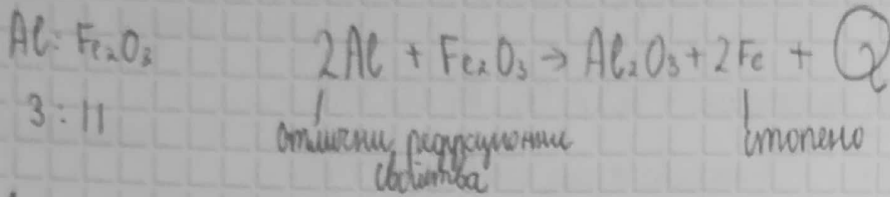 Al : Fe₂O₃
3 : 11
2Al + Fe₂O₃ → Al₂O₃ + 2Fe + Q
отлични редукционни
свойства
стопено